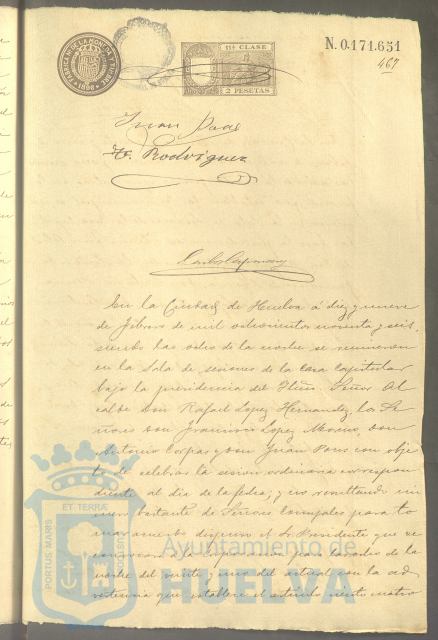 FABRICA NACIONAL DE LA MONEDA Y TIMBRE
1896
11ª CLASE
2 PESETAS
N. 0.171.651
467
Juan Pons
F. Rodriguez
En la Ciudad de Huelva á diez y nueve
de Febrero de mil ochocientos noventa y seis,
siendo las ocho de la noche se reunieron
en la Sala de sesiones de la Casa Capitular
bajo la presidencia del Iltmo. Señor Al
calde Don Rafael Lopez Hernandez, los Se
ñores Don Francisco Lopez Moreno, Don
Antonio Corpas y Don Juan Pons con obje
to de celebrar la sesion ordinaria correspon
diente al dia de la fecha; y no resultando nú
mero bastante de Señores Concejales para to
mar acuerdo dispuso el Sr. Presidente que se
convocara la Corporacion para las ocho de la
noche del veinte y uno del actual con la ad
vertencia que establece el artículo ciento cuatro
PORTUS MARIS
ET TERRÆ
CUSTODIA
Ayuntamiento de
HUELVA